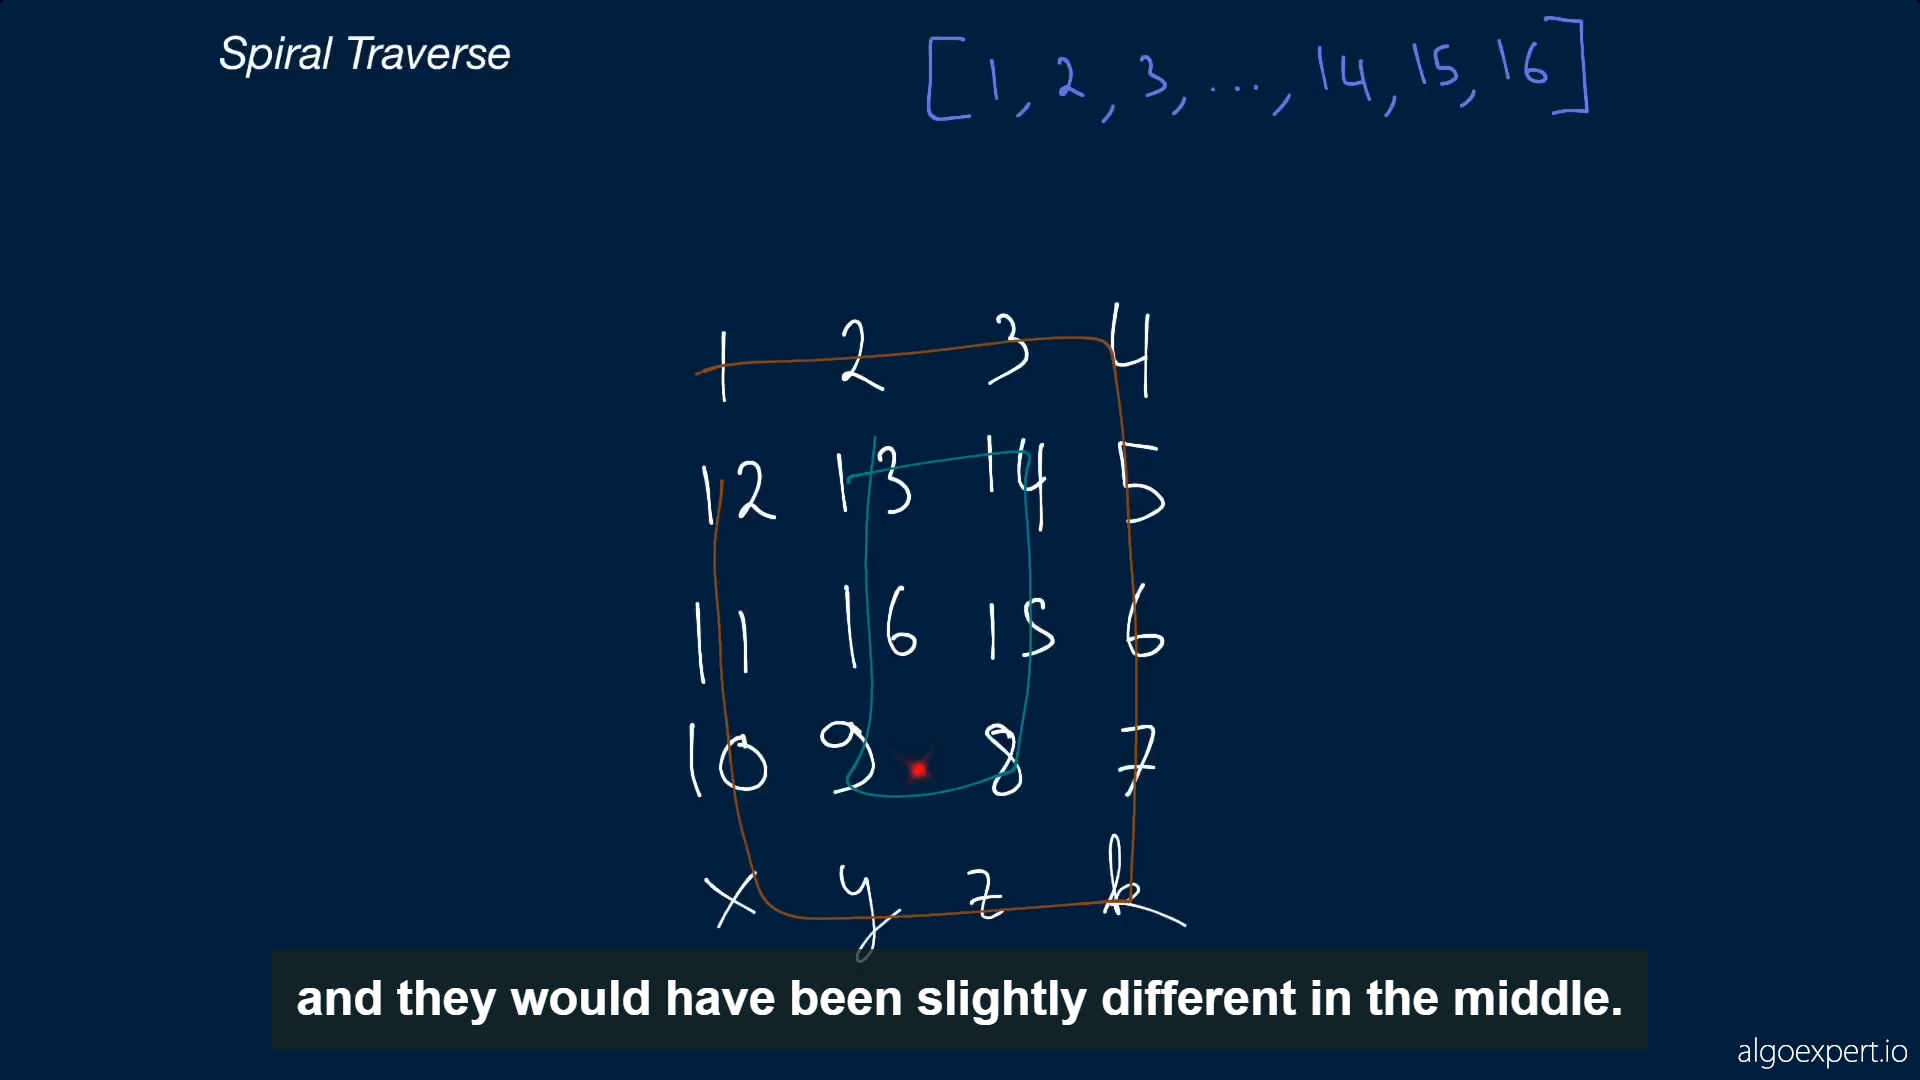 Spiral Traverse
[1, 2, 3, ..., 14, 15, 16]
1 2 3 4
12 13 14 5
11 16 15 6
10 9 8 7
x y z k
and they would have been slightly different in the middle.
algoexpert.io